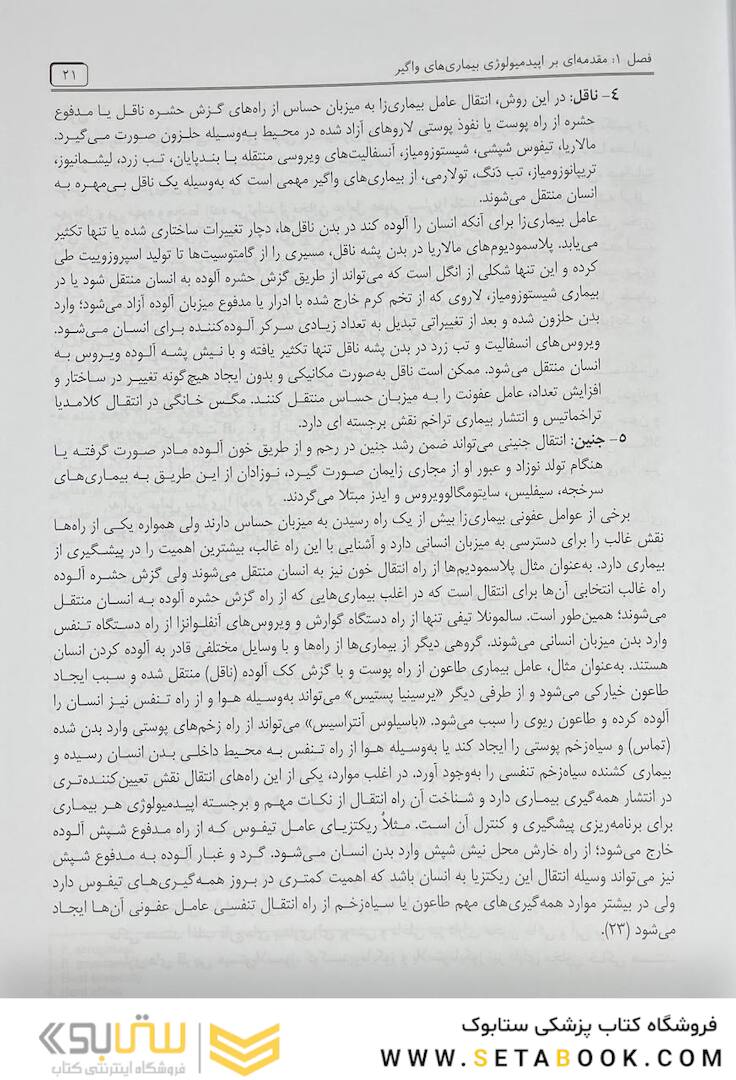 فصل ۱: مقدمه‌ای بر اپیدمیولوژی بیماری‌های واگیر
۲۱
۴- ناقل: در این روش، انتقال عامل بیماری‌زا به میزبان حساس از راه‌های گزش حشره ناقل یا مدفوع
حشره از راه پوست یا نفوذ پوستی لاروهای آزاد شده در محیط به‌وسیله حلزون صورت می‌گیرد.
مالاریا، تیفوس شپشی، شیستوزومیاز، آنسفالیت‌های ویروسی منتقله با بندپایان، تب زرد، لیشمانیوز،
تریپانوزومیاز، تب دَنگ، تولارمی، از بیماری‌های واگیر مهمی است که به‌وسیله یک ناقل بی‌مهره به
انسان منتقل می‌شوند.
عامل بیماری‌زا برای آنکه انسان را آلوده کند در بدن ناقل‌ها، دچار تغییرات ساختاری شده یا تنها تکثیر
می‌یابد. پلاسمودیوم‌های مالاریا در بدن پشه ناقل، مسیری را از گامتوسیت‌ها تا تولید اسپروزوییت طی
کرده و این تنها شکلی از انگل است که می‌تواند از طریق گزش حشره آلوده به انسان منتقل شود یا در
بیماری شیستوزومیاز، لاروی که از تخم کرم خارج شده با ادرار یا مدفوع میزبان آلوده آزاد می‌شود؛ وارد
بدن حلزون شده و بعد از تغییراتی تبدیل به تعداد زیادی سرکر آلوده‌کننده برای انسان می‌شود.
ویروس‌های انسفالیت و تب زرد در بدن پشه ناقل تنها تکثیر یافته و با نیش پشه آلوده ویروس به
انسان منتقل می‌شود. ممکن است ناقل به‌صورت مکانیکی و بدون ایجاد هیچ‌گونه تغییر در ساختار و
افزایش تعداد، عامل عفونت را به میزبان حساس منتقل کنند. مگس خانگی در انتقال کلامدیا
تراخماتیس و انتشار بیماری تراخم نقش برجسته ای دارد.
۵- جنین: انتقال جنینی می‌تواند ضمن رشد جنین در رحم و از طریق خون آلوده مادر صورت گرفته یا
هنگام تولد نوزاد و عبور او از مجاری زایمان صورت گیرد، نوزادان از این طریق به بیماری‌های
سرخجه، سیفلیس، سایتومگالوویروس و ایدز مبتلا می‌گردند.
برخی از عوامل عفونی بیماری‌زا بیش از یک راه رسیدن به میزبان حساس دارند ولی همواره یکی از راه‌ها
نقش غالب را برای دسترسی به میزبان انسانی دارد و آشنایی با این راه غالب، بیشترین اهمیت را در پیشگیری از
بیماری دارد. به‌عنوان مثال پلاسمودیم‌ها از راه انتقال خون نیز به انسان منتقل می‌شوند ولی گزش حشره آلوده
راه غالب انتخابی آن‌ها برای انتقال است که در اغلب بیماری‌هایی که از راه گزش حشره آلوده به انسان منتقل
می‌شوند؛ همین‌طور است. سالمونلا تیفی تنها از راه دستگاه گوارش و ویروس‌های آنفلوانزا از راه دستگاه تنفس
وارد بدن میزبان انسانی می‌شوند. گروهی دیگر از بیماری‌ها از راه‌ها و با وسایل مختلفی قادر به آلوده کردن انسان
هستند. به‌عنوان مثال، عامل بیماری طاعون از راه پوست و با گزش کک آلوده (ناقل) منتقل شده و سبب ایجاد
طاعون خیارکی می‌شود و از طرفی دیگر «یرسینیا پستیس» می‌تواند به‌وسیله هوا و از راه تنفس نیز انسان را
آلوده کرده و طاعون ریوی را سبب می‌شود. «باسیلوس آنتراسیس» می‌تواند از راه زخم‌های پوستی وارد بدن شده
(تماس) و سیاه‌زخم پوستی را ایجاد کند یا به‌وسیله هوا از راه تنفس به محیط داخلی بدن انسان رسیده و
بیماری کشنده سیاه‌زخم تنفسی را به‌وجود آورد. در اغلب موارد، یکی از این راه‌های انتقال نقش تعیین‌کننده‌تری
در انتشار همه‌گیری بیماری دارد و شناخت آن راه انتقال از نکات مهم و برجسته اپیدمیولوژی هر بیماری
برای برنامه‌ریزی پیشگیری و کنترل آن است. مثلاً ریکتزیای عامل تیفوس که از راه مدفوع شپش آلوده
خارج می‌شود؛ از راه خارش محل نیش شپش وارد بدن انسان می‌شود. گرد و غبار آلوده به مدفوع شپش
نیز می‌تواند وسیله انتقال این ریکتزیا به انسان باشد که اهمیت کمتری در بروز همه‌گیری‌های تیفوس دارد
ولی در بیشتر موارد همه‌گیری‌های مهم طاعون یا سیاه‌زخم از راه انتقال تنفسی عامل عفونی آن‌ها ایجاد
می‌شود (۲۳).
فروشگاه کتاب پزشکی ستابوک
WWW.SETABOOK.COM
ستابوک
فروشگاه اینترنتی کتاب